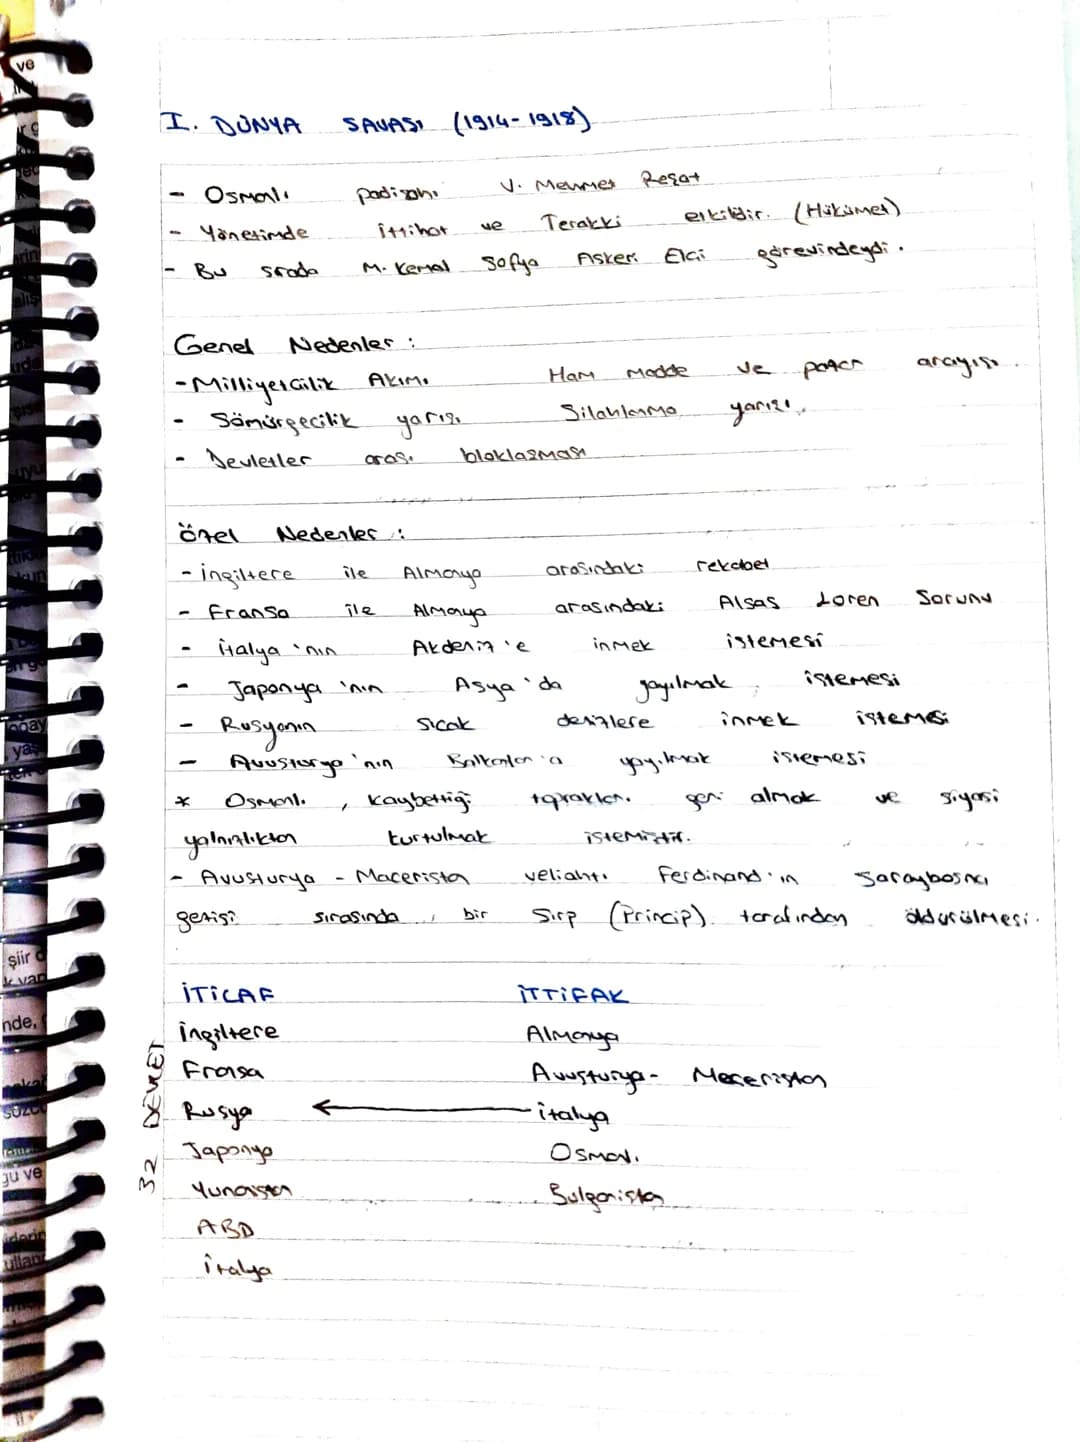 I. DÜNYA SAVAŞI (1914-1918)
- Osmanlı padişahı V. Mehmet Reşat
- Yönetimde İttihat ve Terakki etkilidir. (Hükümet)
- Bu sırada M. Kemal Sofya Askeri Elçi görevindeydi.
Genel Nedenler :
- Milliyetçilik Akımı Ham madde ve pazar arayışı.
- Sömürgecilik yarışı Silahlanma yarışı
- Devletler arası bloklaşması
Özel Nedenler :
- İngiltere ile Almanya arasındaki rekabet
- Fransa ile Almanya arasındaki Alsas Loren Sorunu
- İtalya'nın Akdeniz'e inmek istemesi
- Japonya'nın Asya'da yayılmak istemesi
- Rusyanın sıcak denizlere inmek istemesi
- Avusturya'nın Balkanlar'a yayılmak istemesi
* Osmanlı, kaybettiği toprakları geri almak ve siyasi
yalnızlıktan kurtulmak istemiştir.
- Avusturya - Maceristan veliahtı Ferdinand'ın Saraybosna
gezisi sırasında, bir Sırp (Princip) tarafından öldürülmesi.
İTİLAF İTTİFAK
İngiltere Almanya
Fransa Avusturya - Macaristan
Rusya ← İtalya
Japonya Osmanlı
Yunanistan Bulgaristan
ABD
İtalya
32 DEVLET
ve
şiir
nde,
gu ve